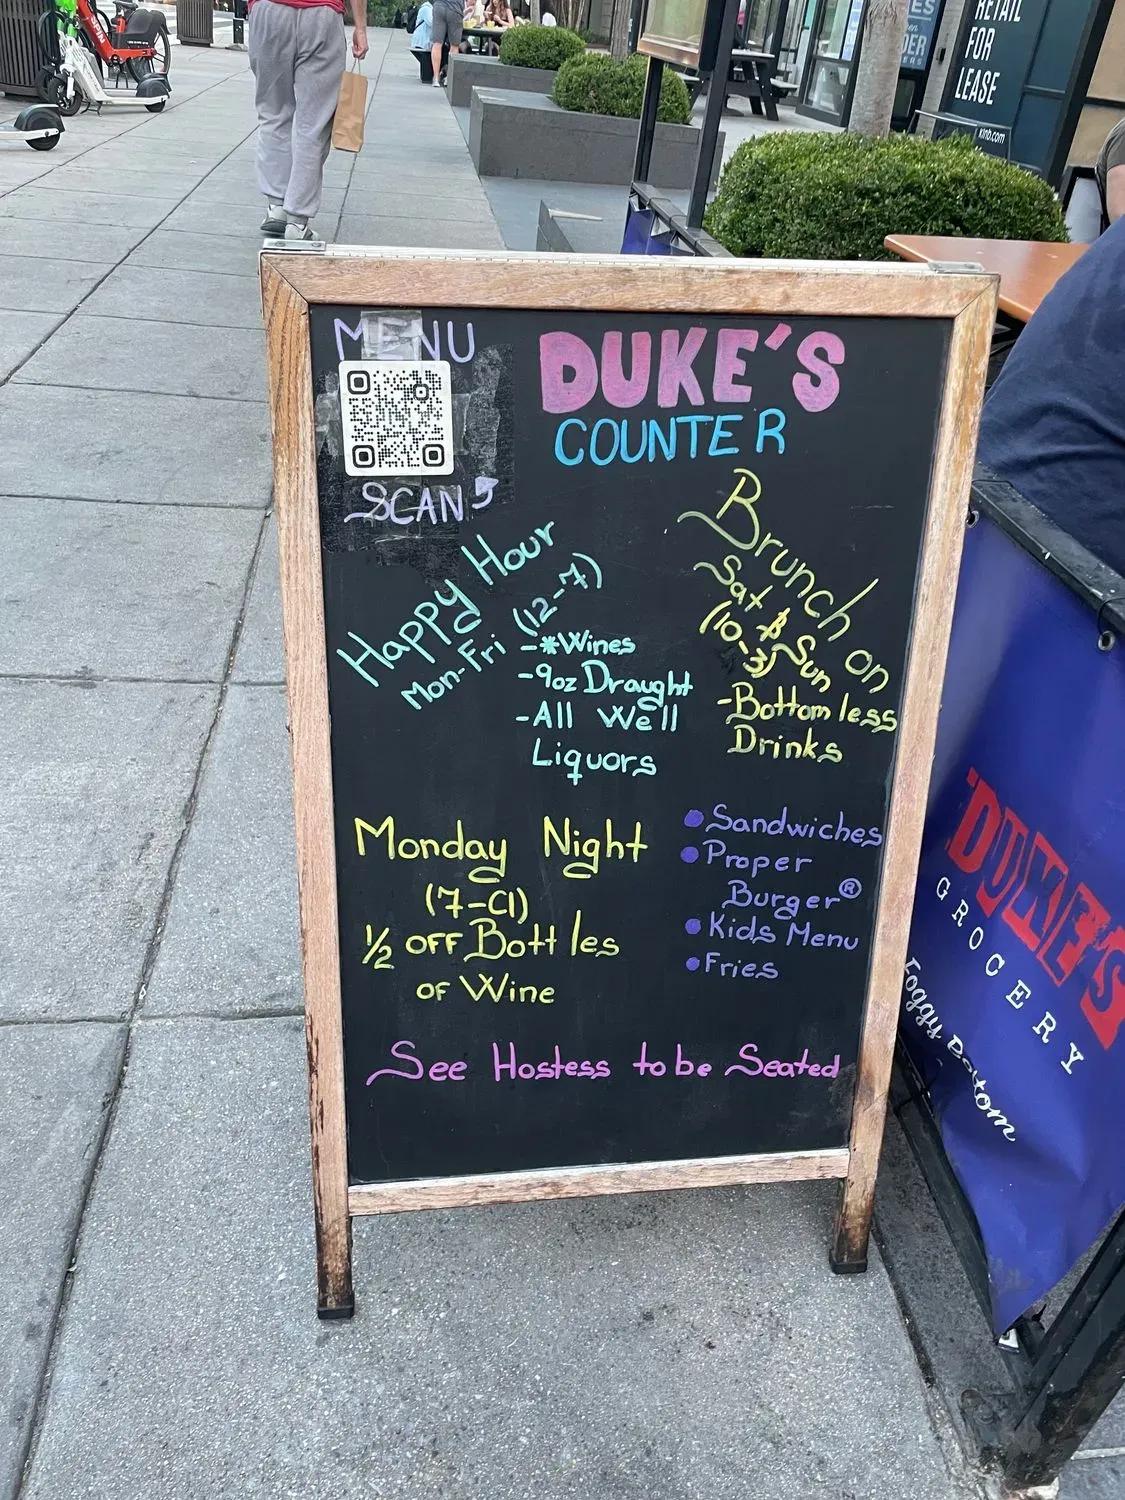 MENU
SCAN
DUKE'S
COUNTER
Happy Hour
Mon-Fri (12-7)
-*Wines
-9oz Draught
-All Well
Liquors
Brunch on
Sat & Sun
(10-3)
-Bottomless
Drinks
Monday Night
(7-Cl)
1/2 OFF Bottles
OF Wine
•Sandwiches
•Proper
Burger®
•Kids Menu
•Fries
See Hostess to be Seated
DUKE'S
GROCERY
Foggy Bottom
RETAIL
FOR
LEASE
klnb.com